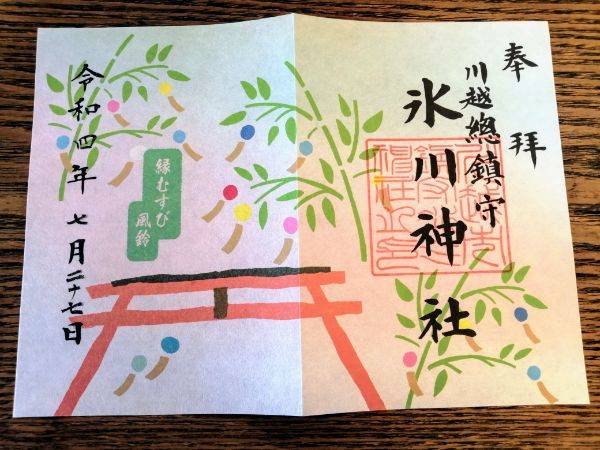 奉拝
川越總鎮守
氷川神社
縁むすび
風鈴
令和四年 七月二十七日